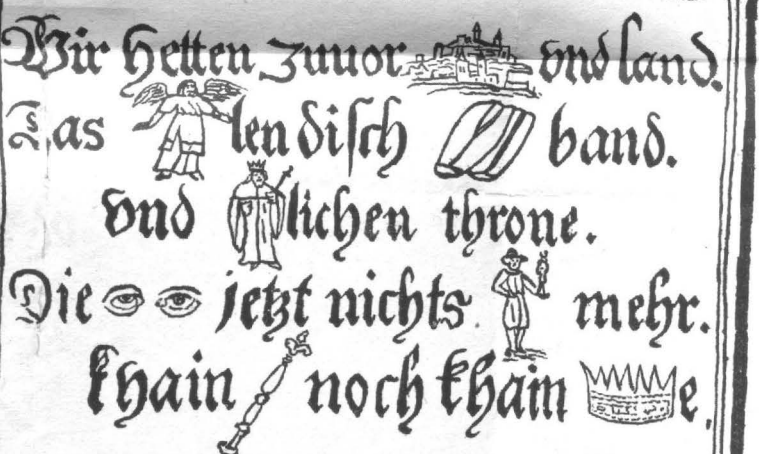 Wir hetten zuuor vnd land.
Das lendisch band.
vnd lichen throne.
Die jetzt nichts mehr.
khain noch khain e.